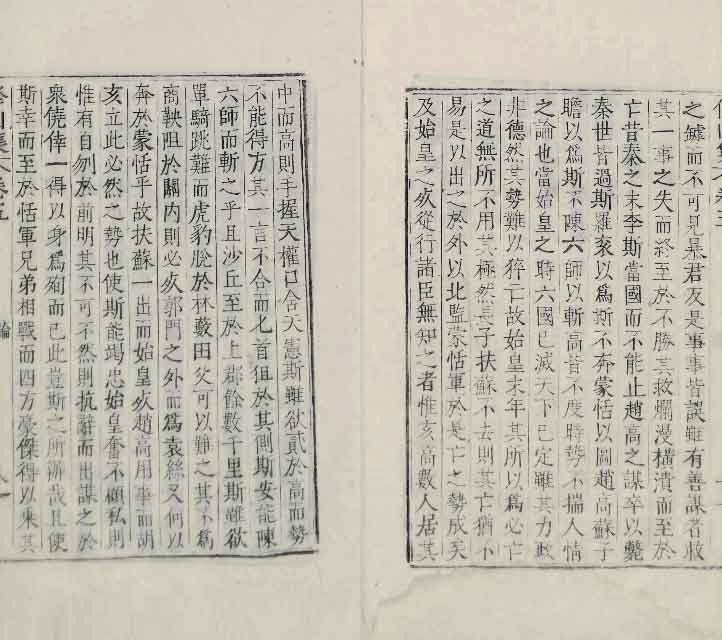 之罅而不可見暴君友是事事皆誤雖有善謀者救
其一事之失而終至於不勝其救爛漫橫潰而至於
亡昔秦之末李斯當國而不能止趙高之謀卒以斃
秦世皆過斯羅袞以爲斯不奔蒙恬以圖趙高蘇子
瞻以爲斯不陳六師以斬高皆不度時勢不揣人情
之論也當始皇之時六國已滅天下已定雖其力政
非德然其勢難以猝亡故始皇末年其所以爲必亡
之道無所不用其極然長子扶蘇不去則其亡猶不
易是以出之於外以北監蒙恬軍於是亡之勢成矣
及始皇之疾從行諸臣無知之者惟亥高數人居其
中而高則手握天權口含天憲斯雖欲貳於高而勢
不能得方其一言不合而匕首狙於其側斯安能陳
六師而斬之乎且沙丘至於上郡餘數千里斯雖欲
單騎跳難而虎豹脫於林藪田父可以難之其不爲
商鞅阻於關内則必疾郭門之外而爲袁絲又何以
奔於蒙恬乎故扶蘇一出而始皇疾趙高用事而胡
亥立此必然之勢也使斯能竭忠始皇奮不顧私則
惟有自刎於前明其不可不然則抗辭而出謀之於
衆僥倖一得以身爲殉而已此豈斯之所辦哉且使
斯幸而至於恬軍兄弟相戰而四方豪傑得以乘其
論